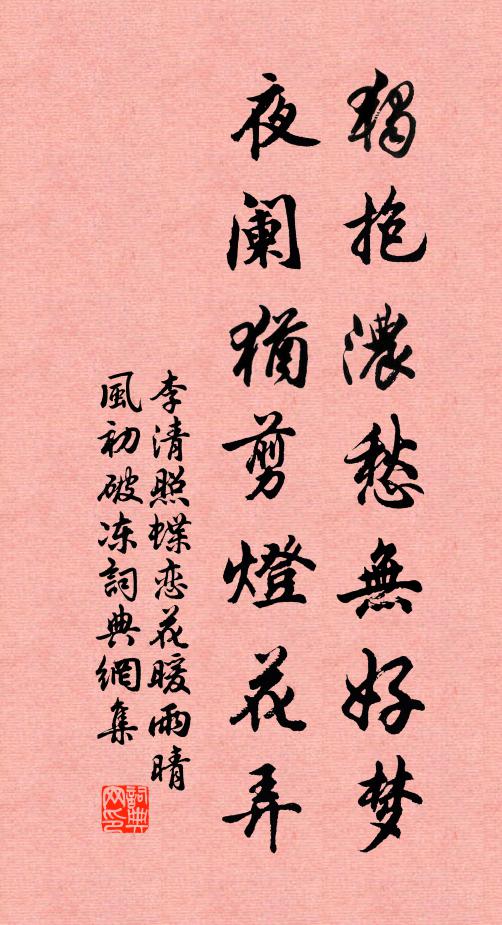 獨抱濃愁無好梦
夜阑猶剪燈花弄
李清照蝶恋花暖雨晴
風初破冻詞典網集
詞典網印